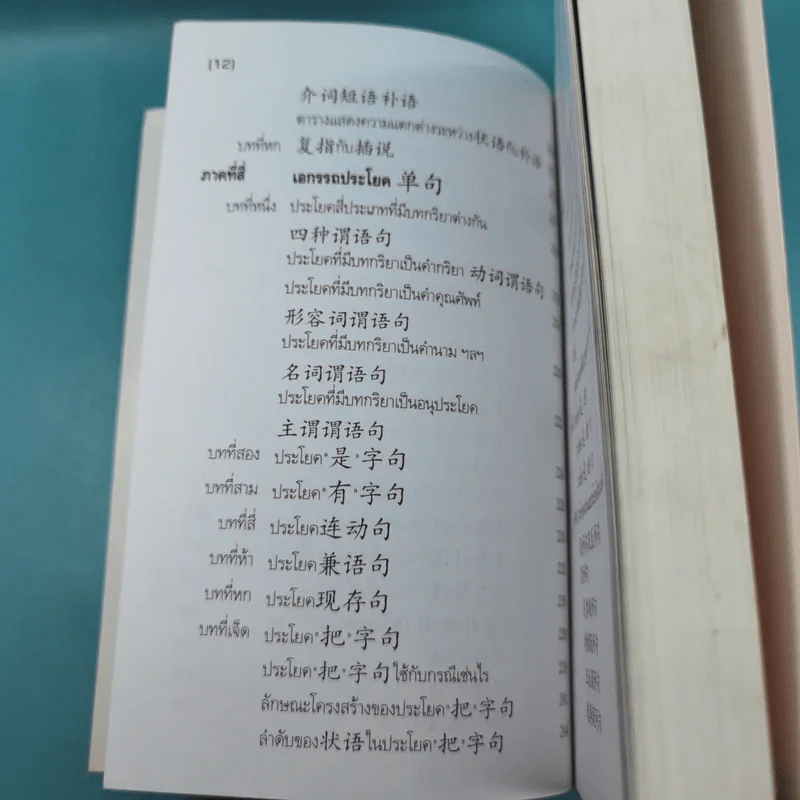 (12)
介词短语补语
ตารางแสดงความแตกต่างระหว่าง状语กับ补语
บทที่หก 复指กับ插说
ภาคที่สี่ เอกรรถประโยค 单句
บทที่หนึ่ง ประโยคสี่ประเภทที่มีบทกริยาต่างกัน
四种谓语句
ประโยคที่มีบทกริยาเป็นคำกริยา 动词谓语句
ประโยคที่มีบทกริยาเป็นคำคุณศัพท์
形容词谓语句
ประโยคที่มีบทกริยาเป็นคำนาม ฯลฯ
名词谓语句
ประโยคที่มีบทกริยาเป็นอนุประโยค
主谓谓语句
บทที่สอง ประโยค"是"字句
บทที่สาม ประโยค"有"字句
บทที่สี่ ประโยค连动句
บทที่ห้า ประโยค兼语句
บทที่หก ประโยค现存句
บทที่เจ็ด ประโยค"把"字句
ประโยค"把"字句ใช้กับกรณีเช่นไร
ลักษณะโครงสร้างของประโยค"把"字句
ลำดับของ状语ในประโยค"把"字句